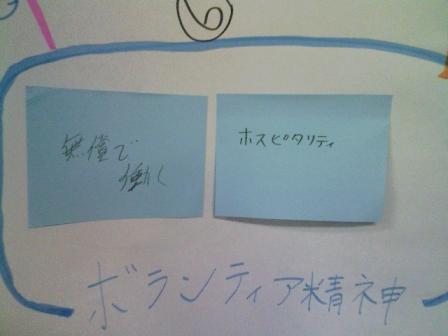 ⑥
無償で
働く
ホスピタリティ
ボランティア精神